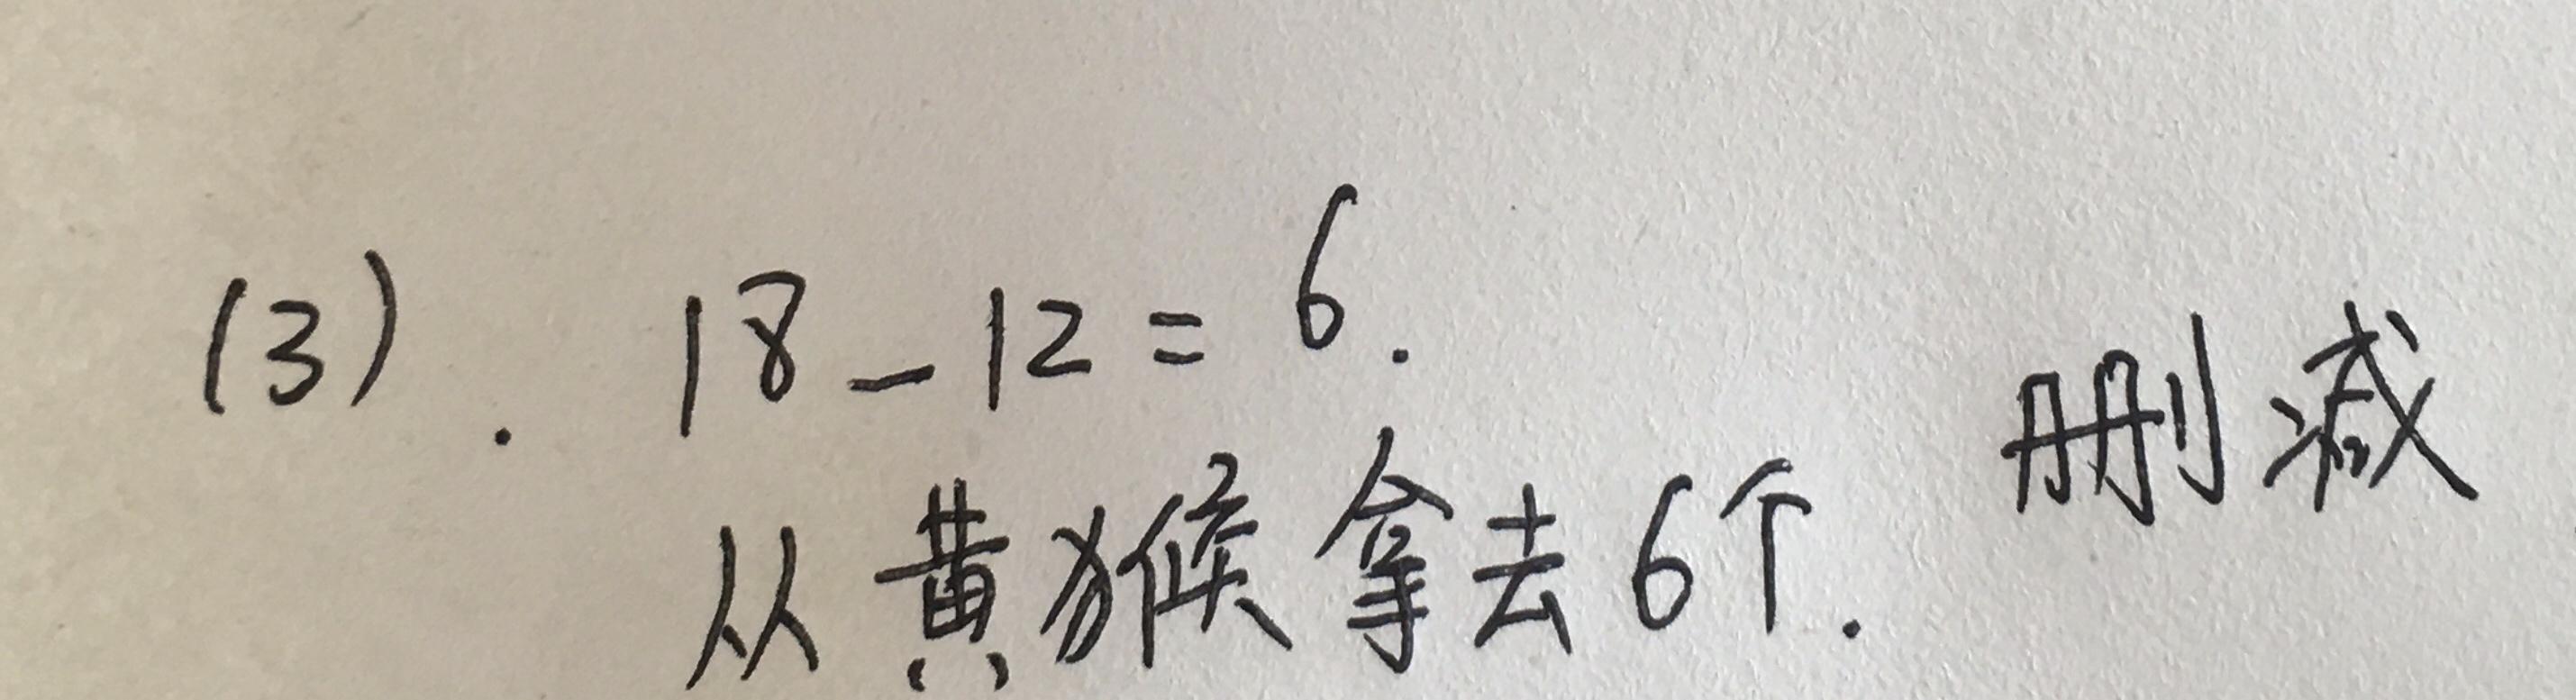 (3). 18-12=6.
删减
从黄猴拿去6个.